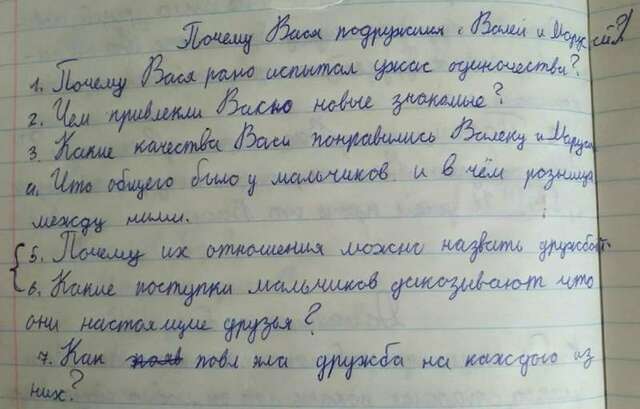 Почему Вася подружился с Валей и Марусей?
1. Почему Вася рано испытал ужас одиночества?
2. Чем привлекли Васю новые знакомые?
3. Какие качества Васи понравились Валеку и Маруси
4. Что общего было у мальчиков и в чём разница
между ними.
5. Почему их отношения можно назвать дружбой.
6. Какие поступки мальчиков доказывают что
они настоящие друзья?
7. Как повлияла дружба на каждого из
них?